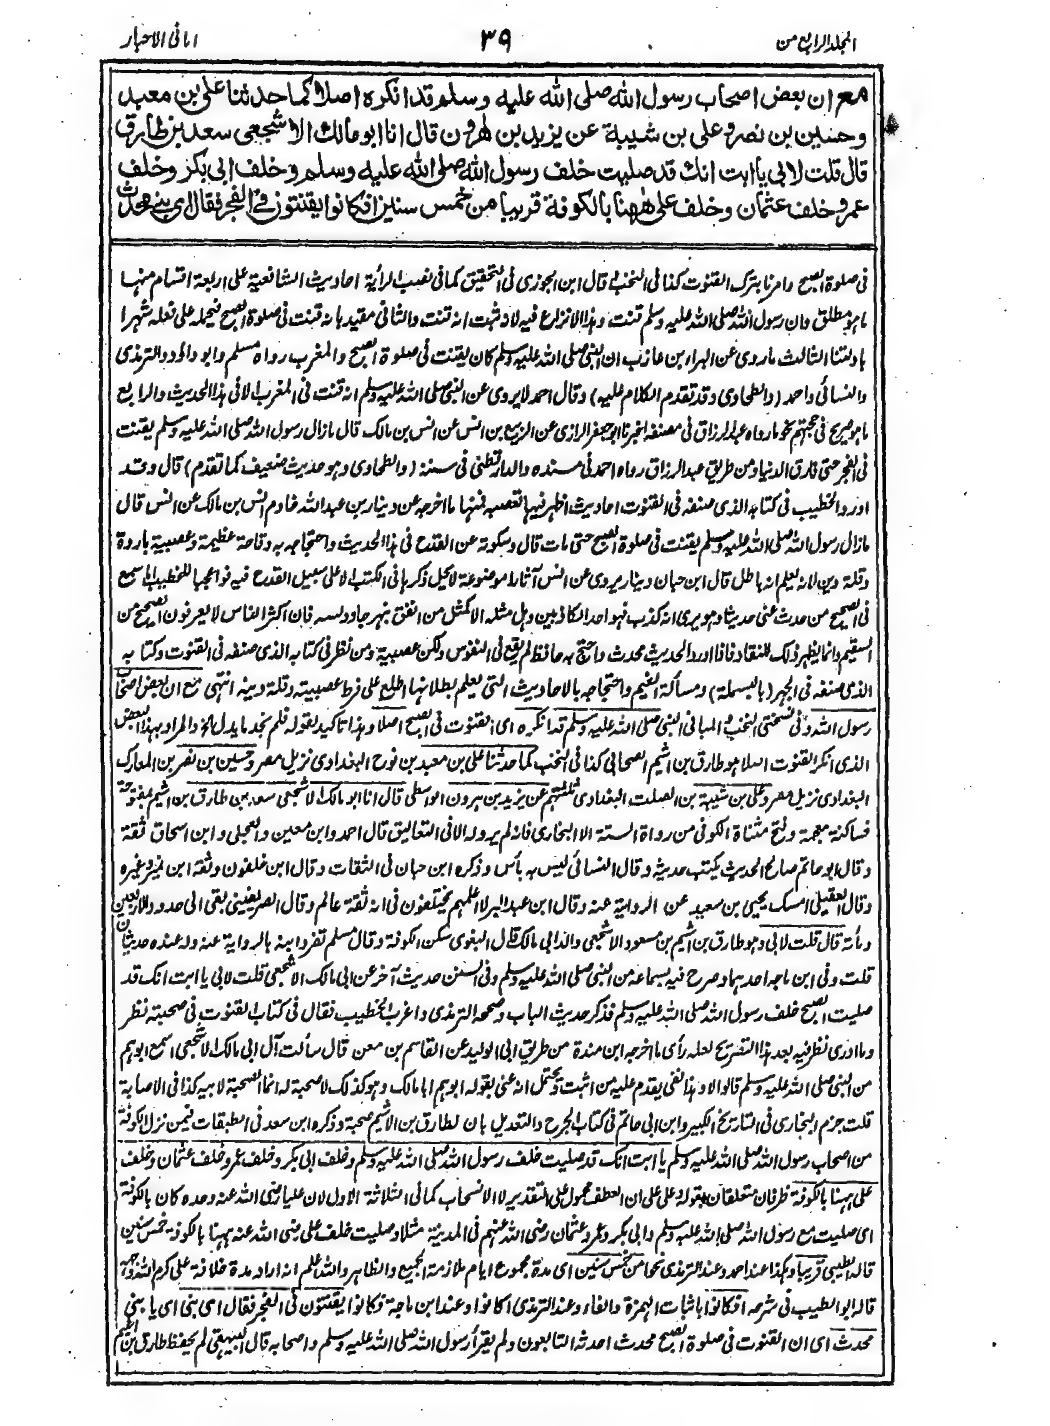 المجلد الرابع من
٣٩
امانی الاحبار
مع ان بعض اصحاب رسول الله صلى الله عليه وسلم قد انكره اصلا كما حدثنا علی بن معبد
وحسين بن نصر وعلی بن شيبة عن يزيد بن هٰرون قال انا ابو مالك الاشجعی سعد بن طارق
قال قلت لابی يا ابت انك قد صليت خلف رسول الله صلى الله عليه وسلم وخلف ابی بكر وخلف
عمر وخلف عثمان وخلف علی هٰهنا بالكوفة قريبا من خمس سنين افكانوا يقنتون فی الفجر فقال ای بنی محدث
فی صلوة الصبح وامرنا بترك القنوت كذا فی النخب قال ابن الجوزی فی التحقيق كما فی نصب الراية احاديث الشافعية علی اربعة اقسام منها
ما هو مطلق وان رسول الله صلى الله عليه وسلم قنت وهذا لا نزاع فيه لانه ثبت انه قنت والثانی مقيد بانه قنت فی صلوة الصبح فيحمله علی فعله شهرا
بادلتنا الثالث ما روی عن البراء بن عازب ان النبی صلى الله عليه وسلم كان يقنت فی صلوة الصبح والمغرب رواه مسلم وابو داؤد والترمذی
والنسائی واحمد (والطحاوی وقد تقدم الكلام عليه) وقال احمد لا يروی عن النبی صلى الله عليه وسلم انه قنت فی المغرب الا فی هذا الحديث والرابع
ما هو صريح فی حجتهم نحو ما رواه عبدالرزاق فی مصنفه اخبرنا ابو جعفر الرازی عن الربيع بن انس عن انس بن مالك قال ما زال رسول الله صلى الله عليه وسلم يقنت
فی الفجر حتی فارق الدنيا ومن طريق عبدالرزاق رواه احمد فی مسنده والدارقطنی فی سننه (والطحاوی وهو حديث ضعيف كما تقدم) قال وقد
اورد الخطيب فی كتابه الذی صنفه فی القنوت احاديث اظهر فيها تعصبه فمنها ما اخرجه عن دينار بن عبد الله خادم انس بن مالك عن انس قال
ما زال رسول الله صلى الله عليه وسلم يقنت فی صلوة الصبح حتی مات قال وسكوته عن القدح فی هذا الحديث واحتجاجه به وقاحة عظيمة وعصبية باردة
وقلة دين لانه يعلم انه باطل قال ابن حبان دينار يروی عن انس آثارا موضوعة لا يحل ذكرها فی الكتب الا علی سبيل القدح فيه فوا عجبا للخطيب اما سمع
فی الصحيح من حدث عنی حديثا وهو يری انه كذب فهو احد الكاذبين وهل مثله الا كمثل من انفق بهرجا ودلسه فان اكثر الناس لا يعرفون الصحيح من
السقيم وانما يظهر ذلك للنقاد فاذا اورد الحديث محدث واحتج به حافظ لم يقع فی النفوس ولكن عصبية ومن نظر فی كتابه الذی صنفه فی القنوت وكتابه
الذی صنفه فی الجهر (بالبسملة) ومسألة الغيم واحتجاجه بالاحاديث التی يعلم بطلانها اطلع علی فرط عصبيته وقلة دينه انتهی مع ان بعض اصحاب
رسول الله وفی نسختی النخب والمبانی النبی صلى الله عليه وسلم قد انكره ای القنوت فی الصبح اصلا وهذا تاكيد لقوله فلم نجد ما يدل الخ والمراد بهذا البعض
الذی انكر القنوت اصلا هو طارق بن اشيم الصحابی كذا فی النخب كما حدثنا علی بن معبد بن نوح البغدادی نزيل مصر وحسين بن نصر بن المعارك
البغدادی نزيل مصر وعلی بن شيبة بن الصلت البغدادی ثلثتهم عن يزيد بن هرون الواسطی قال انا ابو مالك الاشجعی سعد بن طارق بن اشيم بمفتوحة
فساكنة معجمة وفتح مثناة الكوفی من رواة الستة الا البخاری فانه لم يرو له الا فی التعاليق قال احمد وابن معين والعجلی وابن اسحاق ثقة
وقال ابو حاتم صالح الحديث يكتب حديثه وقال النسائی ليس به بأس وذكره ابن حبان فی الثقات وقال ابن خلفون وثقه ابن نمير وغيره
وقال العقيلی امسك يحيی بن سعيد عن الرواية عنه وقال ابن عبد البر لا اعلمهم يختلفون فی انه ثقة عالم وقال الصريفينی بقی الی حدود الاربعين
ومأته قال قلت لابی وهو طارق بن اشيم بن مسعود الاشجعی والد ابی مالك قال البغوی سكن الكوفة وقال مسلم تفرد ابنه بالرواية عنه وله عنده حديثان
قلت وفی ابن ماجه احدهما وصرح فيه بسماعه من النبی صلى الله عليه وسلم وفی السنن حديث آخر عن ابی مالك الاشجعی قلت لابی يا ابت انك قد
صليت الصبح خلف رسول الله صلى الله عليه وسلم فذكر حديث الباب وصححه الترمذی واغرب الخطيب فقال فی كتاب القنوت فی صحبته نظر
وما ادری نظر فيه بعد هذا التصريح لعله رأی ما اخرجه ابن مندة من طريق ابی الوليد عن القاسم بن معن قال سألت آل ابی مالك الاشجعی اسمع ابوهم
من النبی صلى الله عليه وسلم قالوا لا وهذا نفی يقدم عليه من اثبت ويحتمل انه عنی بقوله ابوهم ابا مالك وهو كذلك لا صحبة له انما الصحبة لابيه كذا فی الاصابة
قلت جزم البخاری فی التاريخ الكبير وابن ابی حاتم فی كتاب الجرح والتعديل بان لطارق بن الاشيم صحبة وذكره ابن سعد فی الطبقات فيمن نزل الكوفة
من اصحاب رسول الله صلى الله عليه وسلم يا ابت انك قد صليت خلف رسول الله صلى الله عليه وسلم وخلف ابی بكر وخلف عمر وخلف عثمان وخلف
علی ههنا بالكوفة ظرفان متعلقان بقوله علی علی ان العطف محمول علی التقدير لا الانسحاب كما فی الثلاثة الاول لان عليا رضی الله عنه وحده كان بالكوفة
ای صليت مع رسول الله صلى الله عليه وسلم وابی بكر وعمر وعثمان رضی الله عنهم فی المدينة مثلا وصليت خلف علی رضی الله عنه ههنا بالكوفة خمس سنين
قاله الطيبی قريبا وهكذا عند احمد وعند الترمذی نحوا من خمس سنين ای مدة مجموع ايام ملازمة الجميع والظاهر والله اعلم انه اراد مدة خلافة علی كرم الله وجهه
قاله ابو الطيب فی شرحه افكانوا باثبات الهمزة والفاء وعند الترمذی اكانوا وعند ابن ماجة فكانوا يقنتون فی الفجر فقال ای بنی ای يا بنی
محدث ای ان القنوت فی صلوة الصبح محدث احدثه التابعون ولم يقرأ رسول الله صلى الله عليه وسلم واصحابه قال البيهقی لم يحفظ طارق بن اشيم